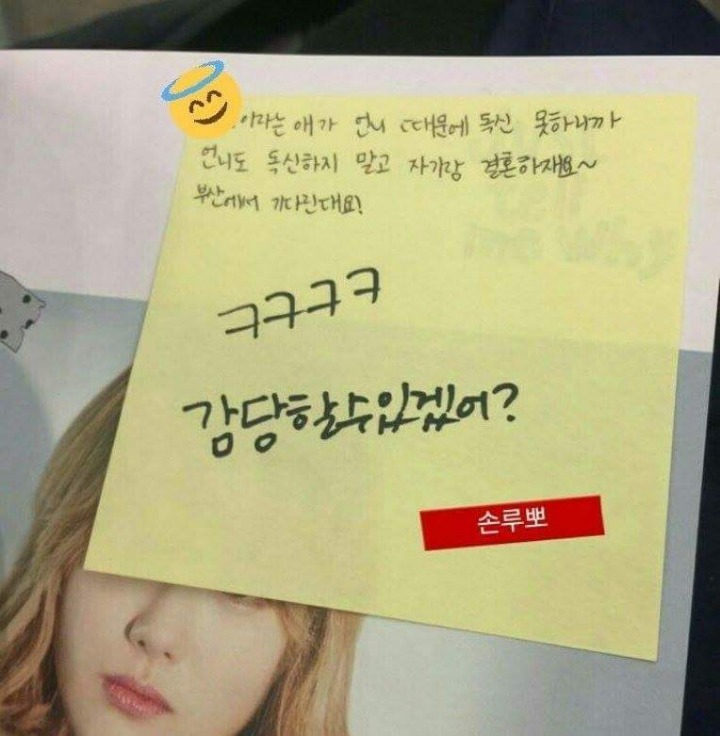 이라는 애가 언니 때문에 독신 못하니까
언니도 독신하지 말고 자기랑 결혼하재요~
부산에서 기다린대요!
ㅋㅋㅋㅋ
감당할수있겠어?
손루뽀